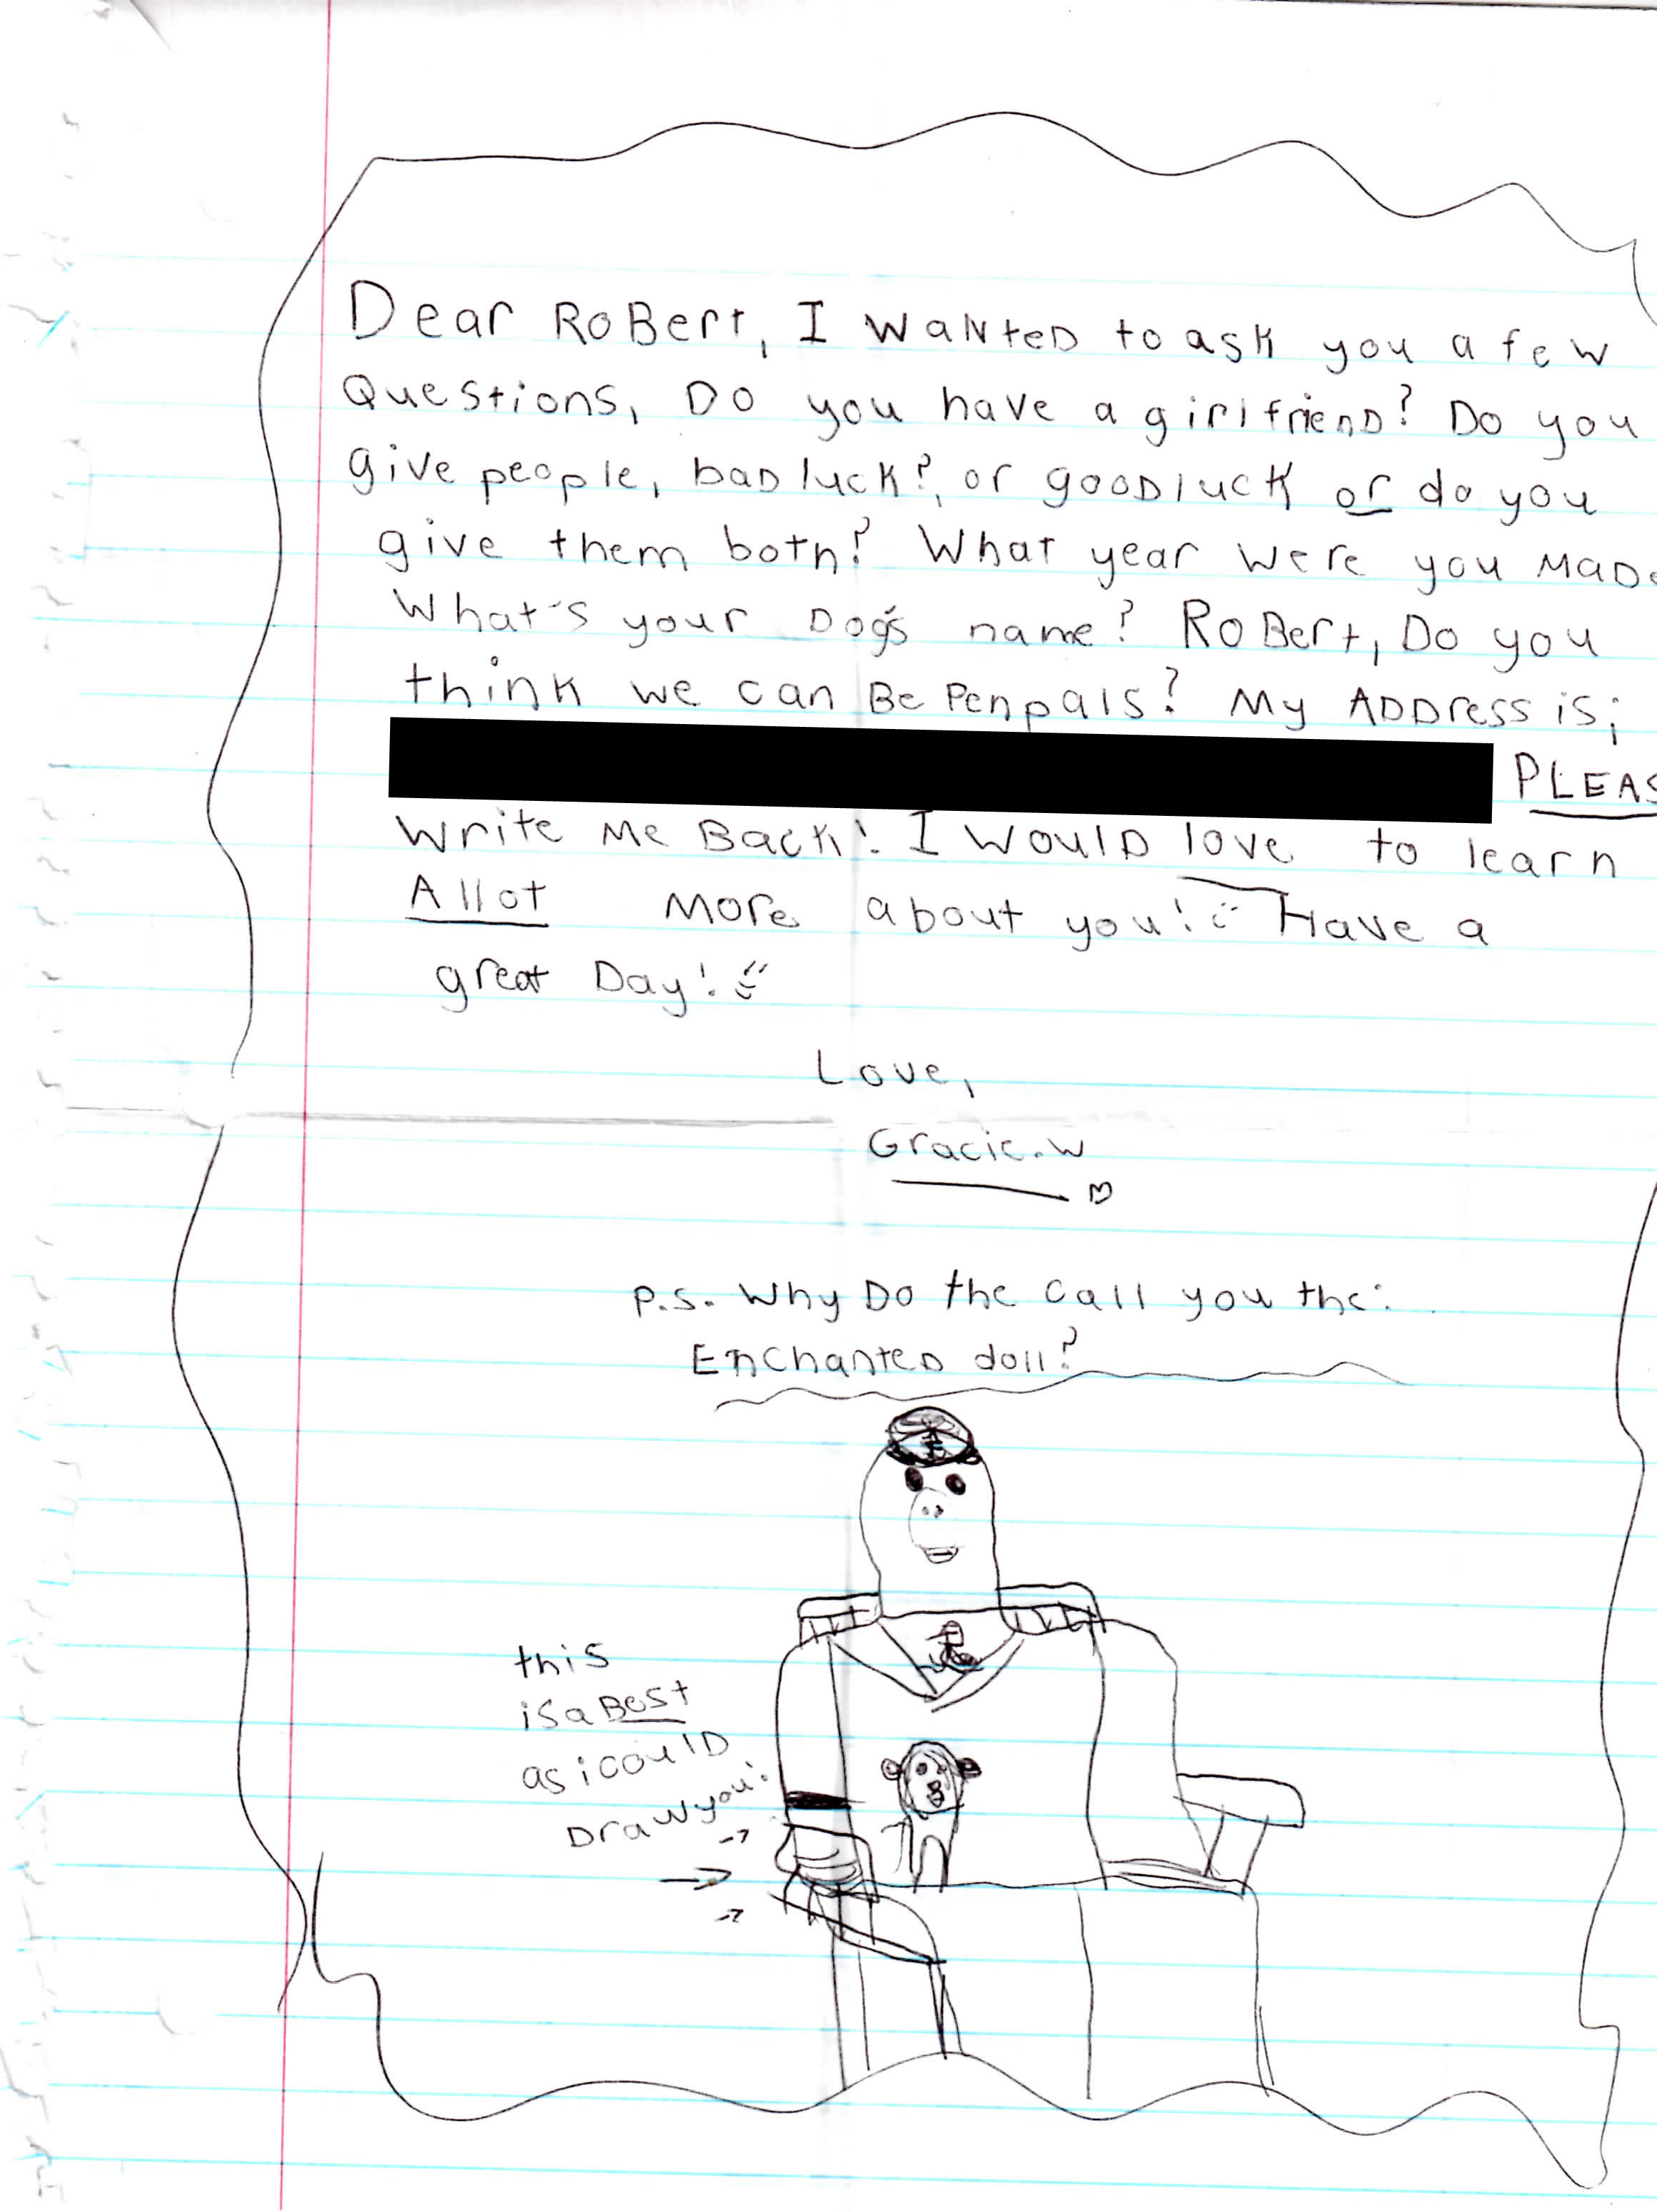 Dear RoBert, I waNteD to ask you a few
Questions, Do you have a girlfrienD? Do you
give people, baD luck?, or gooD luck or do you
give them both? What year were you MaDe
What's your Dog's name? RoBert, Do you
think we can Be Penpals? My ADDress is;
PLEAS
write Me Back! I woulD love to learn
Allot More about you! Have a
great Day!
Love,
Gracie.w
P.S. Why Do the call you the:
EnchanteD doll?
this
is a Best
as i coulD
Draw you: